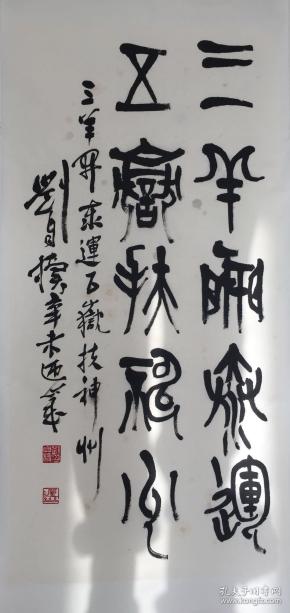 三羊開泰運
五嶽扶神州
三羊開泰運五嶽扶神州
劉自櫝辛未
孔夫子旧书网